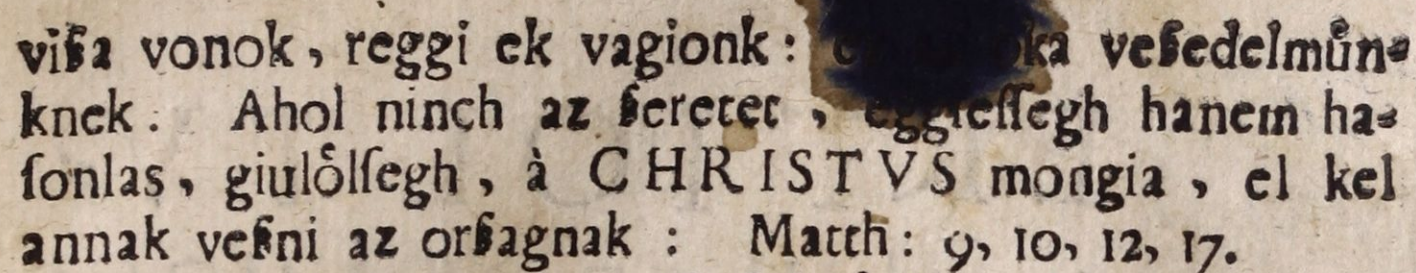 vißa vonok, reggi ek vagionk: veßedelmůn⸗
knek. Ahol ninch az ßeretet, eggieſſegh hanem ha⸗
ſonlas, giulölſegh, à CHRISTVS mongia, el kel
annak veßni az orßagnak: Matth: 9, 10, 12, 17.